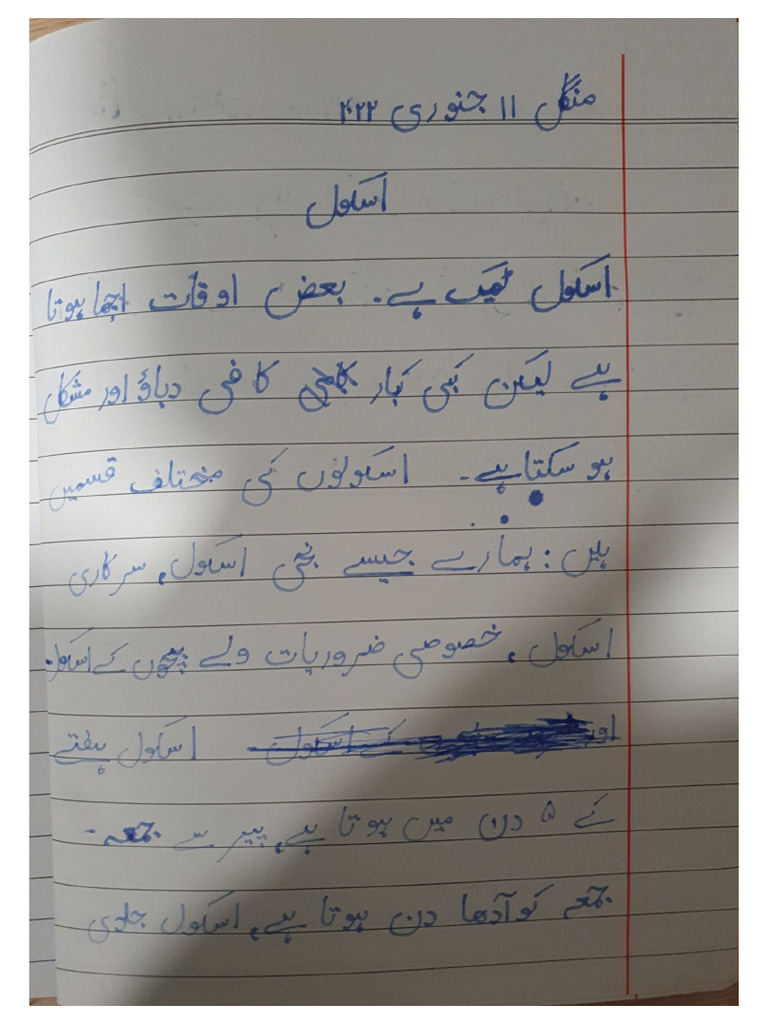 منگل ۱۱ جنوری ۲۰۲۲
اسکول
اسکول ٹھیک ہے۔ بعض اوقات اچھا ہوتا
ہے لیکن کبھی کبار کافی دباؤ اور مشکل
ہو سکتا ہے۔ اسکولوں کی مختلف قسمیں
ہیں: ہمارے جیسے نجی اسکول، سرکاری
اسکول، خصوصی ضروریات ولے بچوں کے اسکول۔
اسکول ہفتے
کے ۵ دن میں ہوتا ہے، پیر سے جمعہ۔
جمعہ کو آدھا دن ہوتا ہے، اسکول جلدی